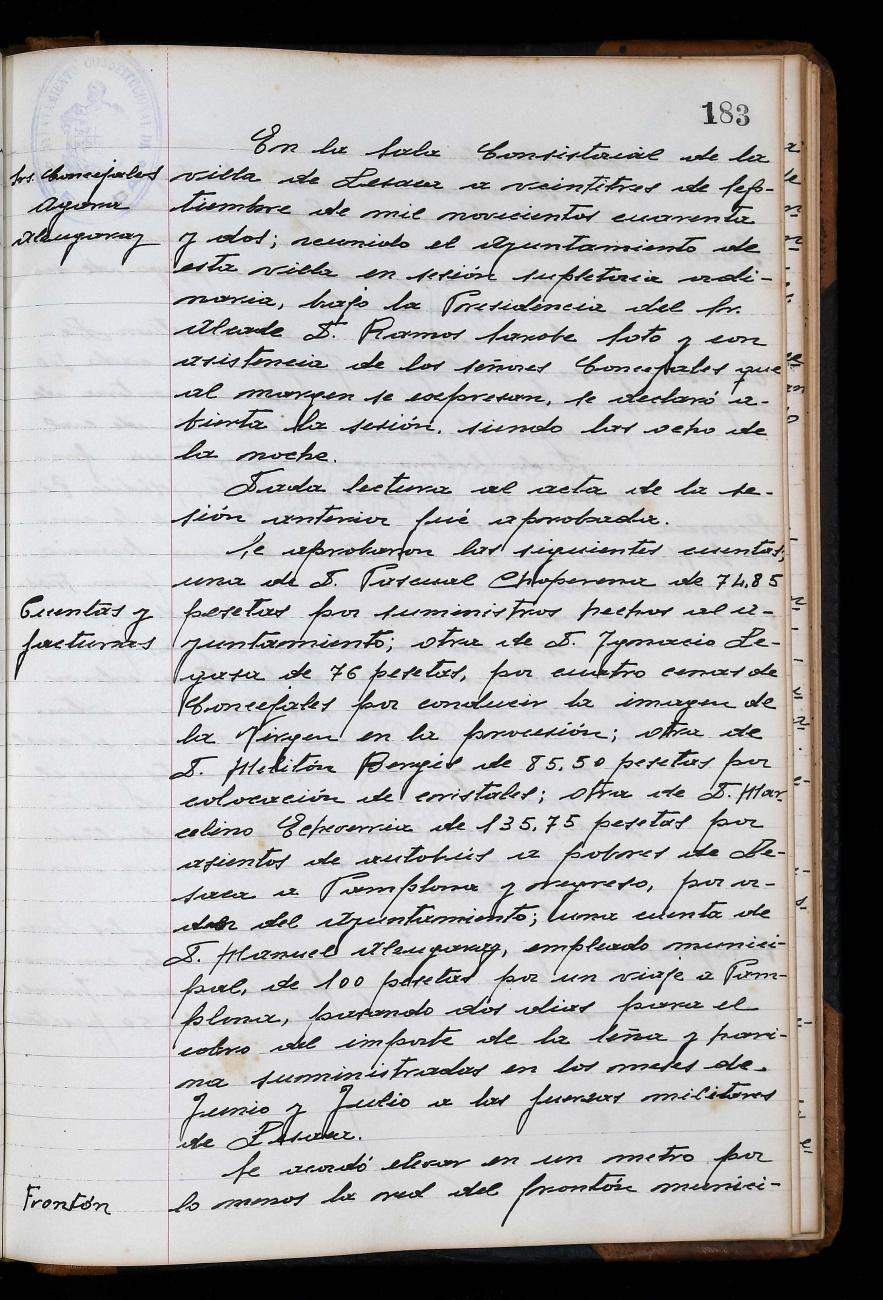 183
En la Sala Consistorial de la
Srs. Concejales
villa de Lesaca a veintitres de sep-
Agara
tiembre de mil novecientos cuarenta
Alzugaray
y dos; reunido el Ayuntamiento de
esta villa en sesión supletoria ordi-
naria, bajo la Presidencia del Sr.
Alcade D. Ramos Sarobe Soto y con
asistencia de los señores Concejales que
al margen se expresan, se declaró a-
bierta la sesión, siendo las ocho de
la noche.
Dada lectura al acta de la se-
sión anterior fué aprobada.
Se aprobaron las siguientes cuentas;
una de D. Pascual Choperena de 74,85
Cuentas y
pesetas por suministros hechos al a-
facturas
yuntamiento; otra de D. Ygnacio Le-
gasa de 76 pesetas, por cuatro cenas de
Concejales por conducir la imagen de
la Virgen en la procesión; otra de
D. Melitón Bergés de 85,50 pesetas por
colocación de cristales; otra de D. Mar-
celino Echeverria de 135,75 pesetas por
asientos de autobús a pobres de Le-
saca a Pamplona y regreso, por or-
den del Ayuntamiento; una cuenta de
D. Manuel Alzugaray, empleado munici-
pal, de 100 pesetas por un viaje a Pam-
plona, pasando dos dias para el
cobro del importe de la leña y hari-
na suministradas en los meses de
Junio y Julio a las fuerzas militares
de Lesaca.
Se acordó elevar en un metro por
Frontón
lo menos la red del frontón munici-